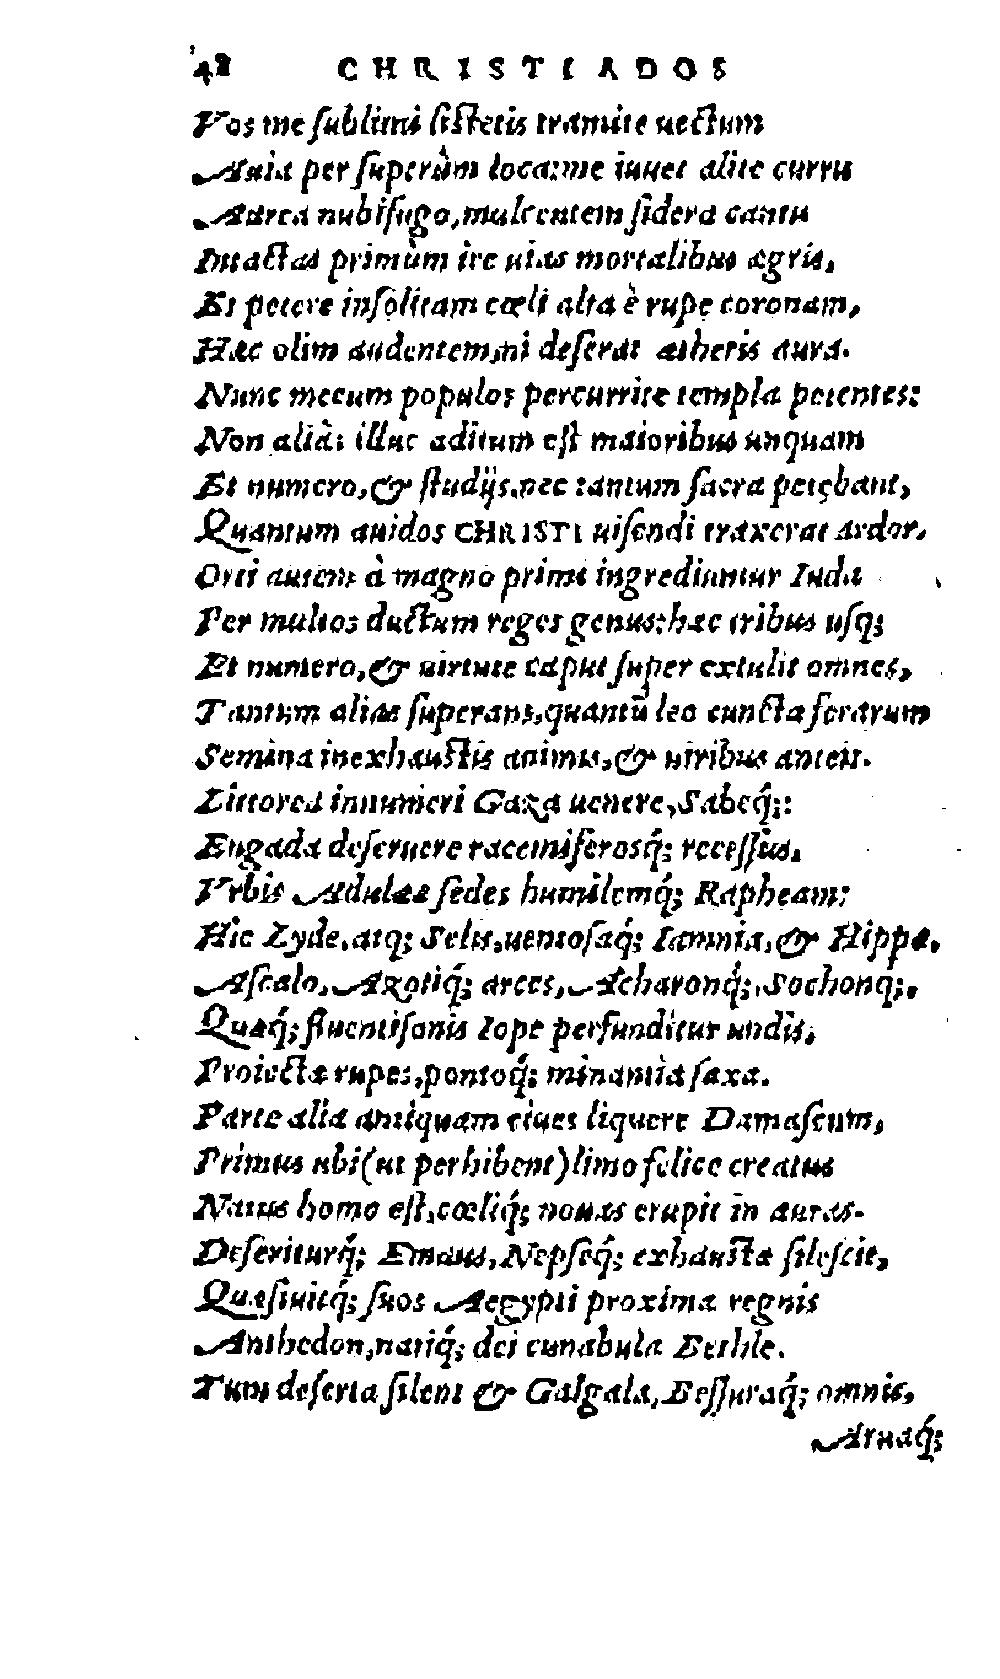 48 CHRISTIADOS
Vos me ſublimi ſiſtetis tramite uectum
Auia per ſuperûm loca: me iuuet alite curru
Aurea nubifugo, mulcentem ſidera cantu
Intactas primùm ire uias mortalibus ægris,
Et petere inſolitam cœli alta è rupe coronam,
Hac olim audentem, ni deſerat ætheris aura.
Nunc mecum populos percurrite templa petentes:
Non aliàs illuc aditum eſt maioribus unquam
Et numero, & ſtudijs, nec tantum ſacra petębant,
Quantum auidos CHRISTI uiſendi traxerat ardor.
Orti autem à magno primi ingrediuntur Iuda
Per multos ductum reges genus: hæc tribus uſq;
Et numero, & uirtute caput ſuper extulit omnes,
Tantum alias ſuperans, quantū leo cuncta ferarum
Semina inexhauſtis animis, & uiribus anteit.
Littorea innumeri Gaza uenere, Sabeq́;:
Engada deſeruere racemiferosq́; receſſus,
Vrbis Adulæ ſedes humilemq́; Rapheam:
Hic Lyde, atq; Selis, uentoſaq́; Iamnia, & Hippa,
Aſcalo, Azotiq́; arces, Acharonq́;, Sochonq;,
Quaq́; fluentiſonis Iope perfunditur undis,
Proiectæ rupes, pontoq́; minantia ſaxa.
Parte alia antiquam ciues liquere Damaſcum,
Primus ubi (ut perhibent) limo felice creatus
Natus homo eſt, cœliq́; nouas erupit in auras.
Deſeriturq́; Emaus, Nepſeq́; exhauſta ſileſcit,
Quæſiuitq́; ſuos Aegypti proxima regnis
Anthedon, natiq́; dei cunabula Bethle.
Tum deſerta ſilent & Galgala, Beſſuraq́; omnis,
Aruaq́;